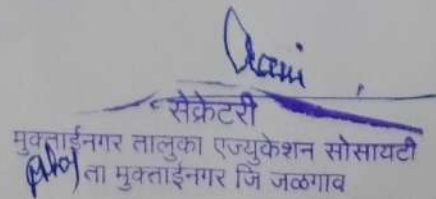 सेक्रेटरी
मुक्ताईनगर तालुका एज्युकेशन सोसायटी
ता मुक्ताईनगर जि जळगाव